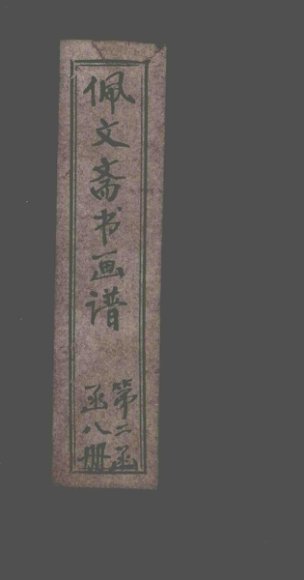 佩文斋书画谱
第二函
函八册